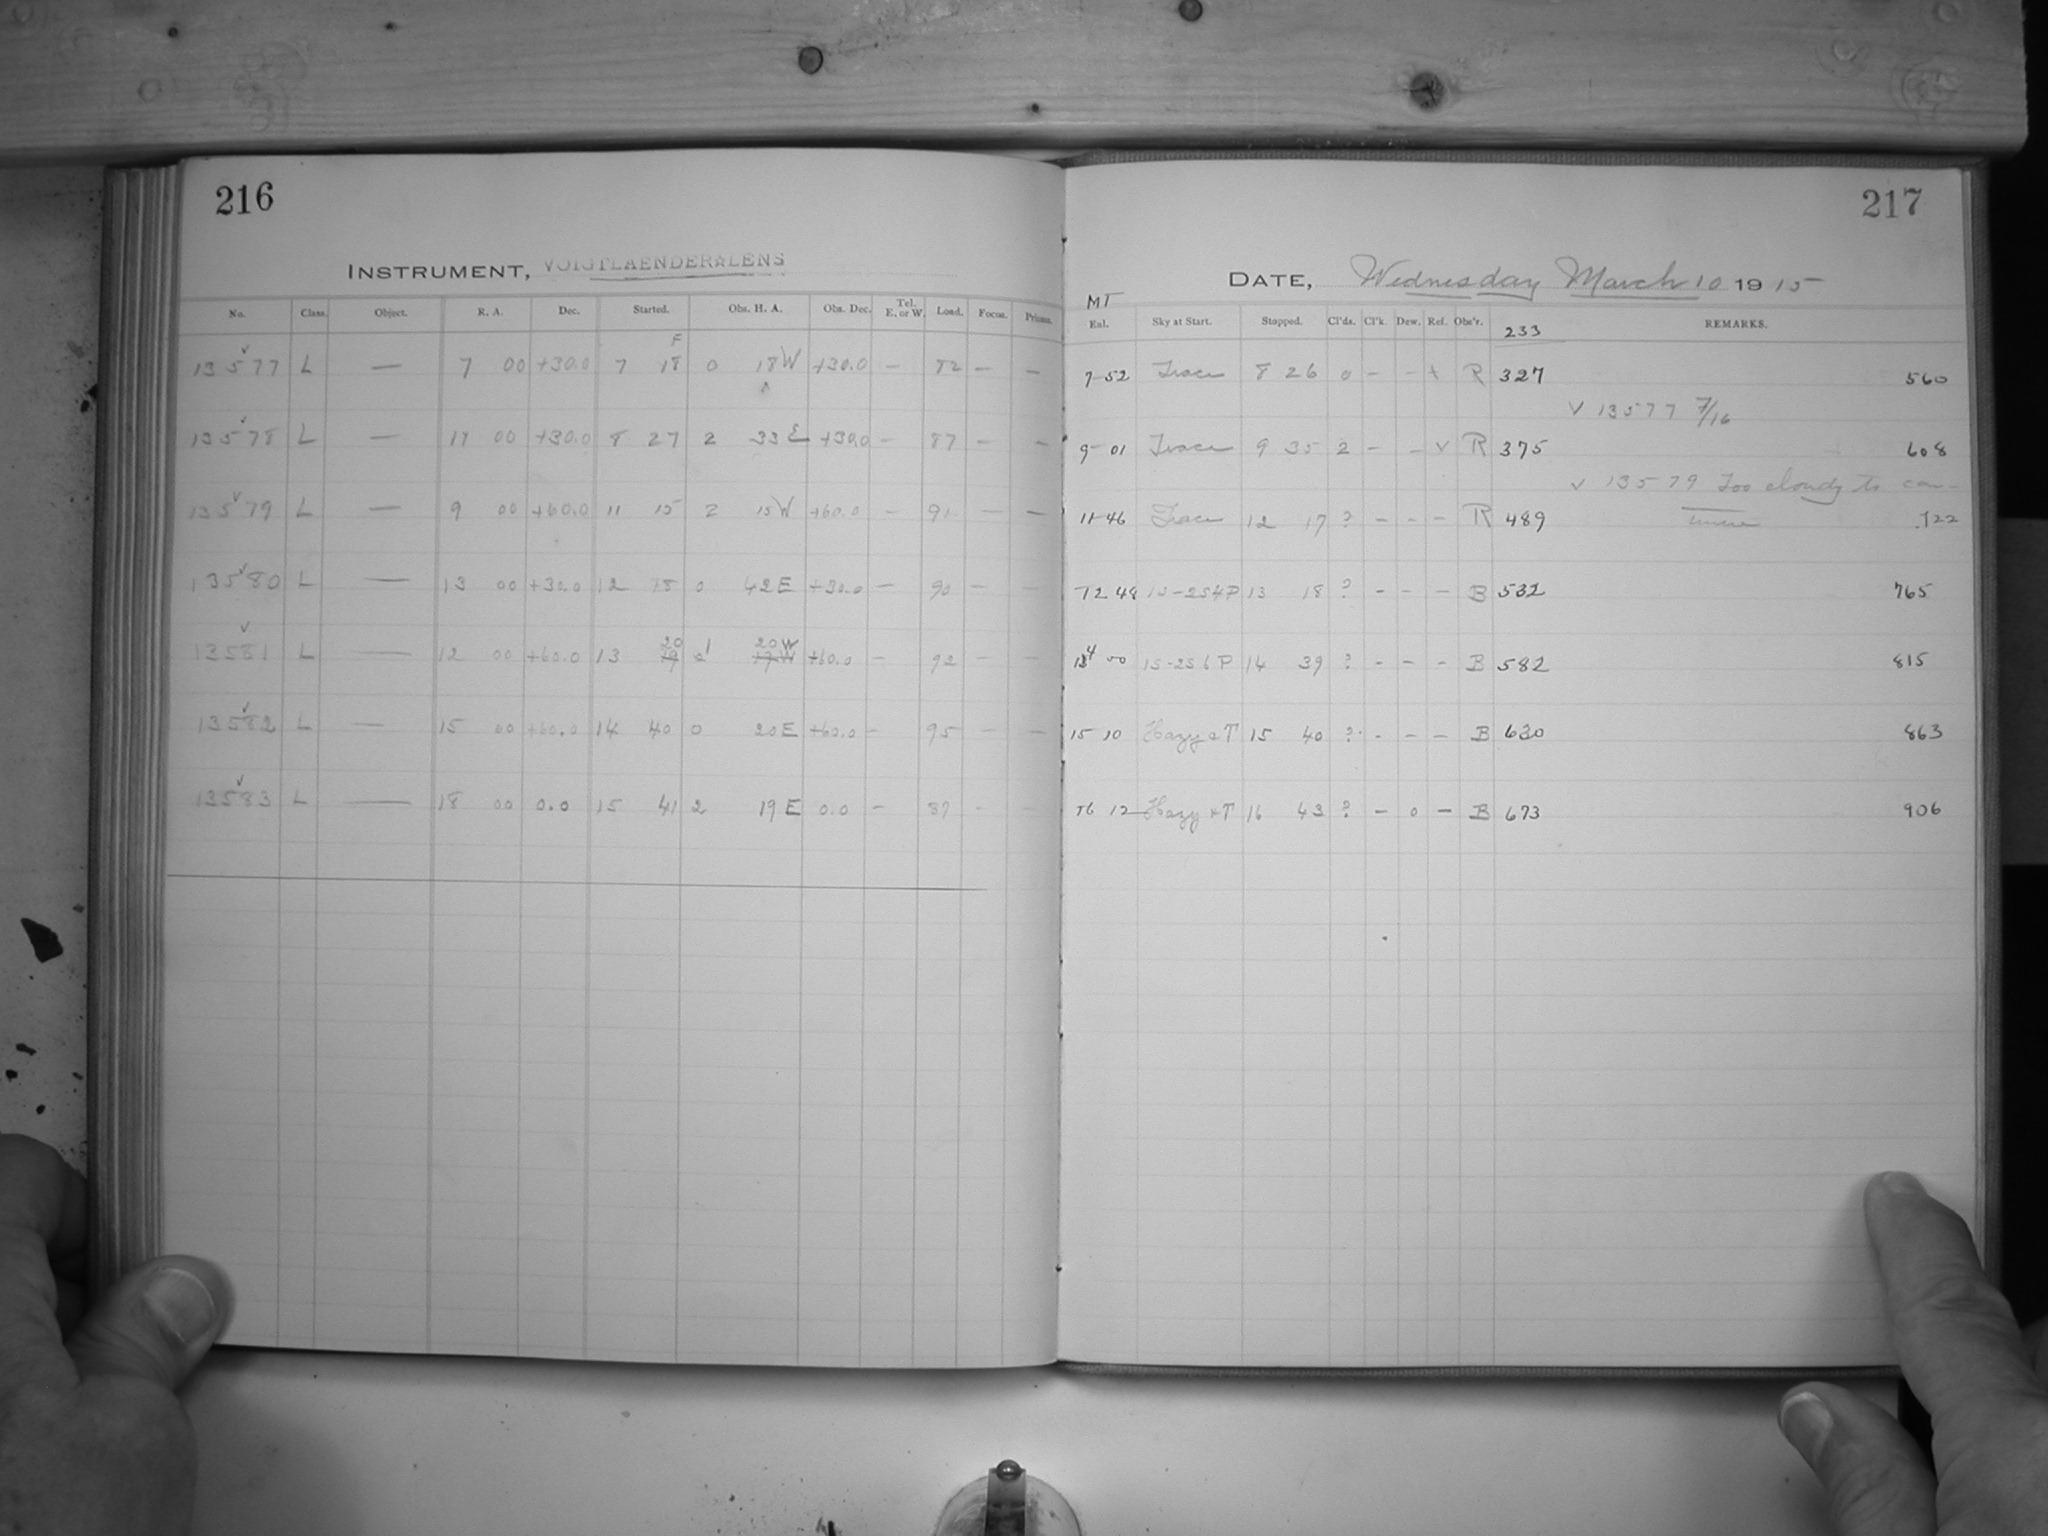 216
INSTRUMENT, VOIGTLAENDER LENS
No. Class. Object. R. A. Dec. Started. Obs. H. A. Obs. Dec. Tel. E. or W. Load. Focus. Prisms.
F
13577 L — 7 00 +30.0 7 18 0 18 W +30.0 — 82 — —
13578 L — 11 00 +30.0 8 27 2 33 E +30.0 — 87 — —
13579 L — 9 00 +60.0 11 15 2 15 W +60.0 — 91 — —
13580 L — 13 00 +30.0 12 18 0 42 E +30.0 — 90 — —
13581 L — 12 00 +60.0 13 20 1 20 W +60.0 — 92 — —
13582 L — 15 00 +60.0 14 40 0 20 E +60.0 — 95 — —
13583 L — 18 00 0.0 15 41 2 19 E 0.0 — 87 — —
217
DATE, Wednesday March 10 1915
MT
Enl. Sky at Start. Stopped. Cl'ds. Cl'k. Dew. Ref. Obs'r. 233 REMARKS.
7-52 Trace 8 26 0 - - + R 327 560
v 13577 7/16
9-01 Trace 9 35 2 - - v R 375 608
v 13579 Too cloudy to con-
11-46 Trace 12 17 ? - - - R 489 tinue 722
12 48 15-2S4P 13 18 ? - - - B 532 765
14 00 15-2S6P 14 39 ? - - - B 582 815
15 10 Hazy & T 15 40 ? - - - B 630 863
16 12 Hazy & T 16 43 ? - 0 - B 673 906